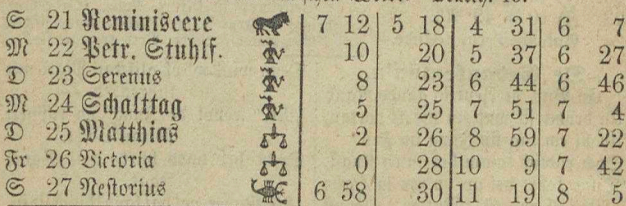 S 21 Reminiscere 7 12 5 18 4 31 6 7
M 22 Petr. Stuhlf. 10 20 5 37 6 27
D 23 Serenus 8 23 6 44 6 46
M 24 Schalttag 5 25 7 51 7 4
D 25 Matthias 2 26 8 59 7 22
Fr 26 Victoria 0 28 10 9 7 42
S 27 Nestorius 6 58 30 11 19 8 5